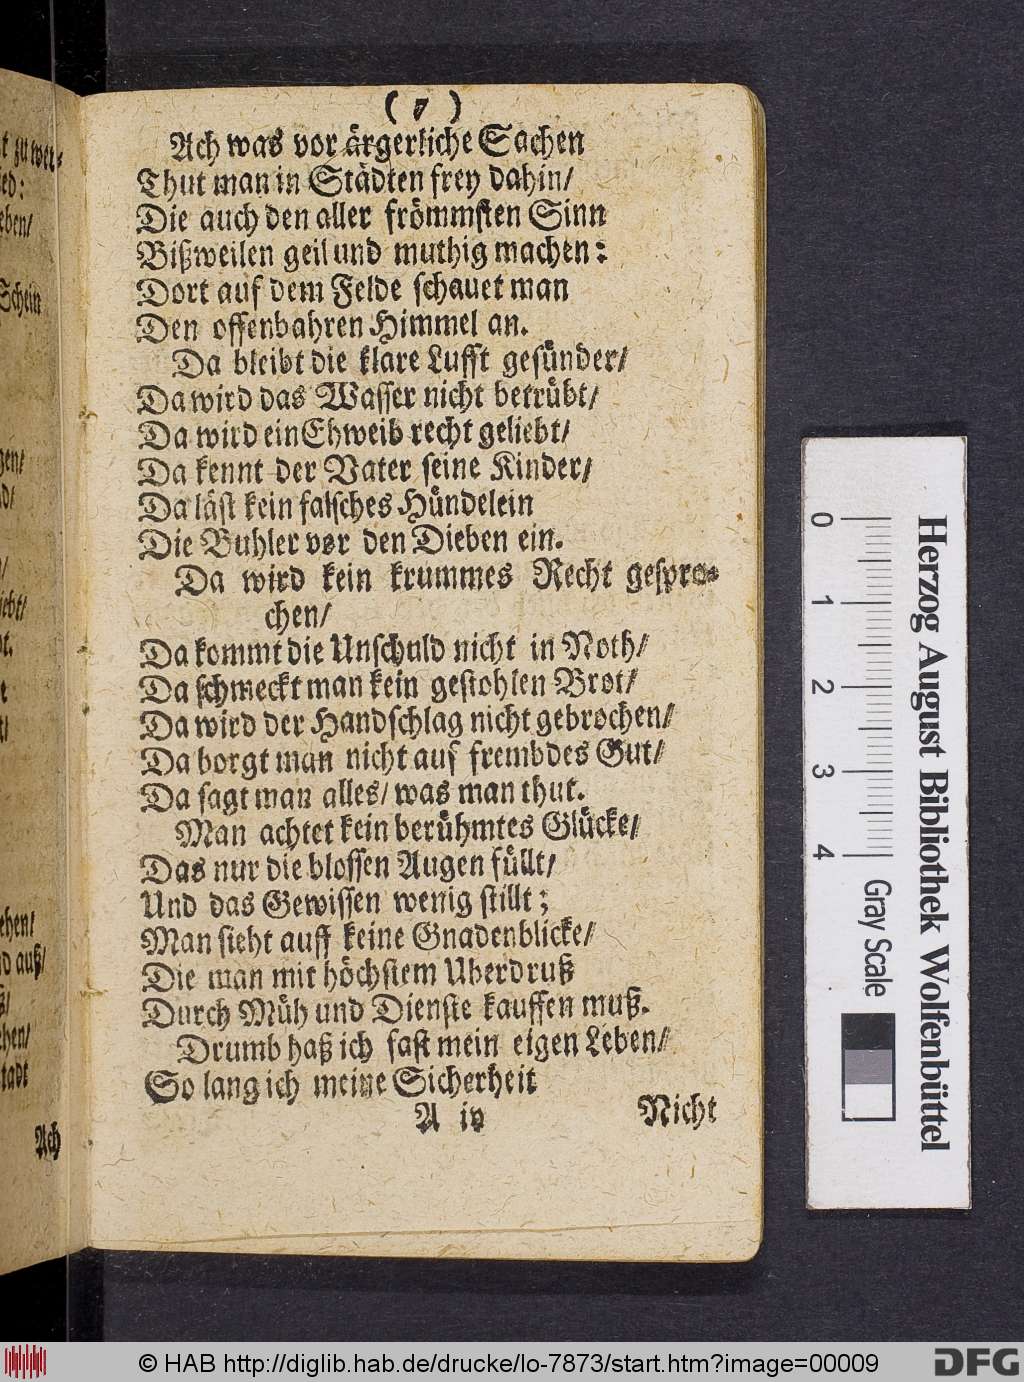 ( 7 )
Ach was vor ärgerliche Sachen
Thut man in Städten frey dahin/
Die auch den aller frömmsten Sinn
Bißweilen geil und muthig machen:
Dort auf dem Felde schauet man
Den offenbahren Himmel an.
Da bleibt die klare Lufft gesünder/
Da wird das Wasser nicht betrübt/
Da wird ein Ehweib recht geliebt/
Da kennt der Vater seine Kinder/
Da läst kein falsches Hündelein
Die Buhler vor den Dieben ein.
Da wird kein krummes Recht gespro-
chen/
Da kommt die Unschuld nicht in Noth/
Da schmeckt man kein gestohlen Brot/
Da wird der Handschlag nicht gebrochen/
Da borgt man nicht auf frembdes Gut/
Da sagt man alles/ was man thut.
Man achtet kein berühmtes Glücke/
Das nur die blossen Augen füllt/
Und das Gewissen wenig stillt;
Man sieht auff keine Gnadenblicke/
Die man mit höchstem Uberdruß
Durch Müh und Dienste kauffen muß.
Drumb haß ich fast mein eigen Leben/
So lang ich meine Sicherheit
A iv
Nicht
Schein
Ach
0 1 2 3 4
Gray Scale
Herzog August Bibliothek Wolfenbüttel
© HAB http://diglib.hab.de/drucke/lo-7873/start.htm?image=00009
DFG